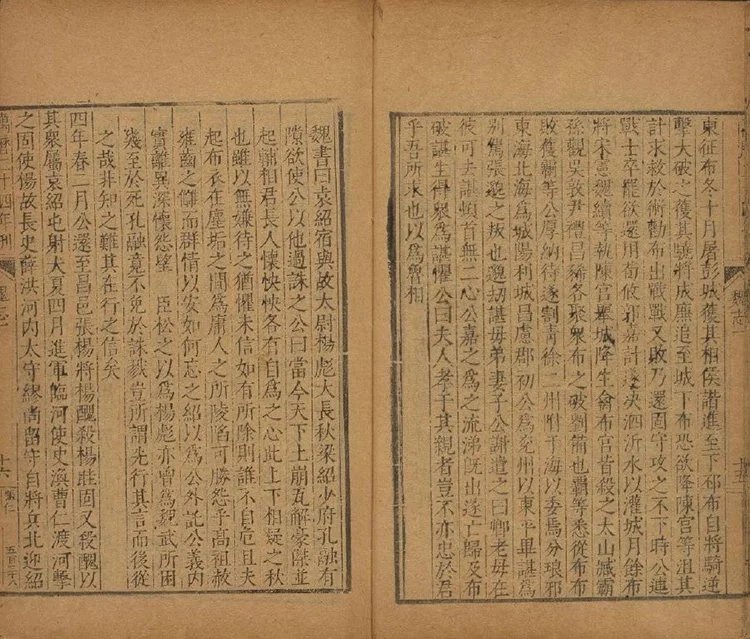 東征布冬十月屠彭城獲其相侯諧進至下邳布自將騎逆
擊大破之獲其驍將成廉追至城下布恐欲降陳宮等沮其
計求救於術勸布出戰戰又敗乃還固守攻之不下時公連
戰士卒罷欲還用荀攸郭嘉計遂決泗沂水以灌城月餘布
將宋憲魏續等執陳宮舉城降生禽布宮皆殺之太山臧霸
孫觀吳敦尹禮昌豨各聚衆布之破劉備也霸等悉從布布
敗獲霸等公厚納待遂割青徐二州附于海以委焉分琅邪
東海北海爲城陽利城昌慮郡初公爲兗州以東平畢諶
別駕張邈之叛也邈劫諶母弟妻子公謝遣之曰卿老母在
彼可去諶頓首無二心公嘉之爲之流涕既出遂亡歸及布
破諶生得衆爲諶懼公曰夫人孝于其親者豈不亦忠於君
乎吾所求也以爲魯相
魏書曰袁紹宿與故大尉楊彪大長秋梁紹少府孔融有
隙欲使公以他過誅之公曰當今天下土崩瓦解豪傑並
起輔相君長人懷怏怏各有自爲之心此上下相疑之秋
也雖以無嫌待之猶懼未信如有所除則誰不自危且夫
起布衣在塵垢之間爲庸人之所陵陷可勝怨乎高祖赦
雍齒之讎而羣情以安如何忘之紹以爲公外託公義內
實離異深懷怨望 臣松之以爲楊彪亦曾爲魏武所困
幾至於死孔融竟不免於誅滅豈所謂先行其言而後從
之哉非知之難其在行之信矣
四年春二月公還至昌邑張楊將楊醜殺楊眭固又殺醜以
其衆屬袁紹屯射犬夏四月進軍臨河使史渙曹仁渡河擊
之固使楊故長史薛洪河內太守繆尚留守自將兵北迎紹
萬曆二十四年刊 魏志一 十六